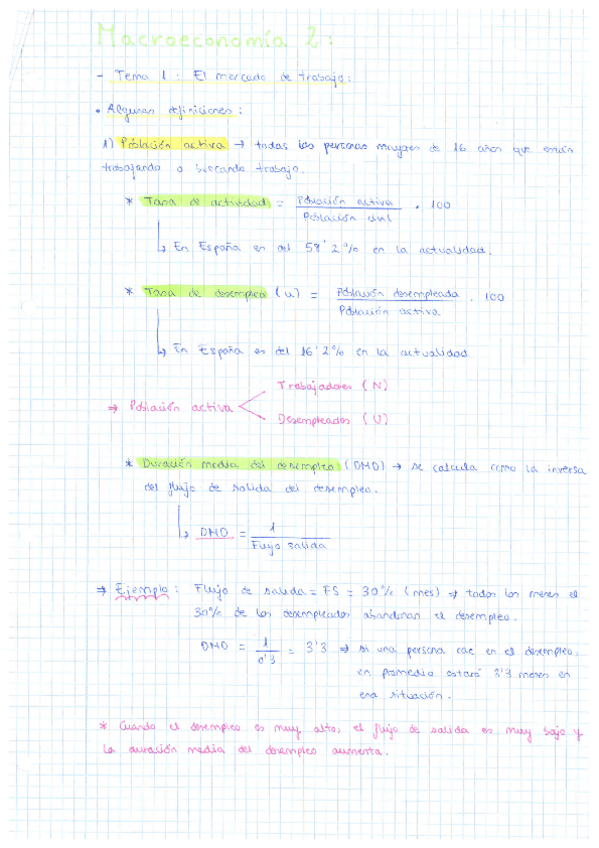 Macroeconomía 2:
- Tema 1: El mercado de trabajo:
• Algunas definiciones:
1) Población activa → todas las personas mayores de 16 años que están
trabajando o buscando trabajo.
* Tasa de actividad = Población activa / Población civil · 100
↳ En España es del 58'2% en la actualidad.
* Tasa de desempleo (u) = Población desempleada / Población activa · 100
↳ En España es del 16'2% en la actualidad
Trabajadores (N)
⇒ Población activa <
Desempleados (U)
* Duración media del desempleo (DMD) → se calcula como la inversa
del flujo de salida del desempleo.
↳ DMD = 1 / Flujo salida
⇒ Ejemplo: Flujo de salida = FS = 30% (mes) ⇒ todos los meses el
30% de los desempleados abandonan el desempleo.
DMD = 1 / 0'3 = 3'3 ⇒ si una persona cae en el desempleo,
en promedio estará 3'3 meses en
esa situación.
* Cuando el desempleo es muy alto, el flujo de salida es muy bajo y
la duración media del desempleo aumenta.